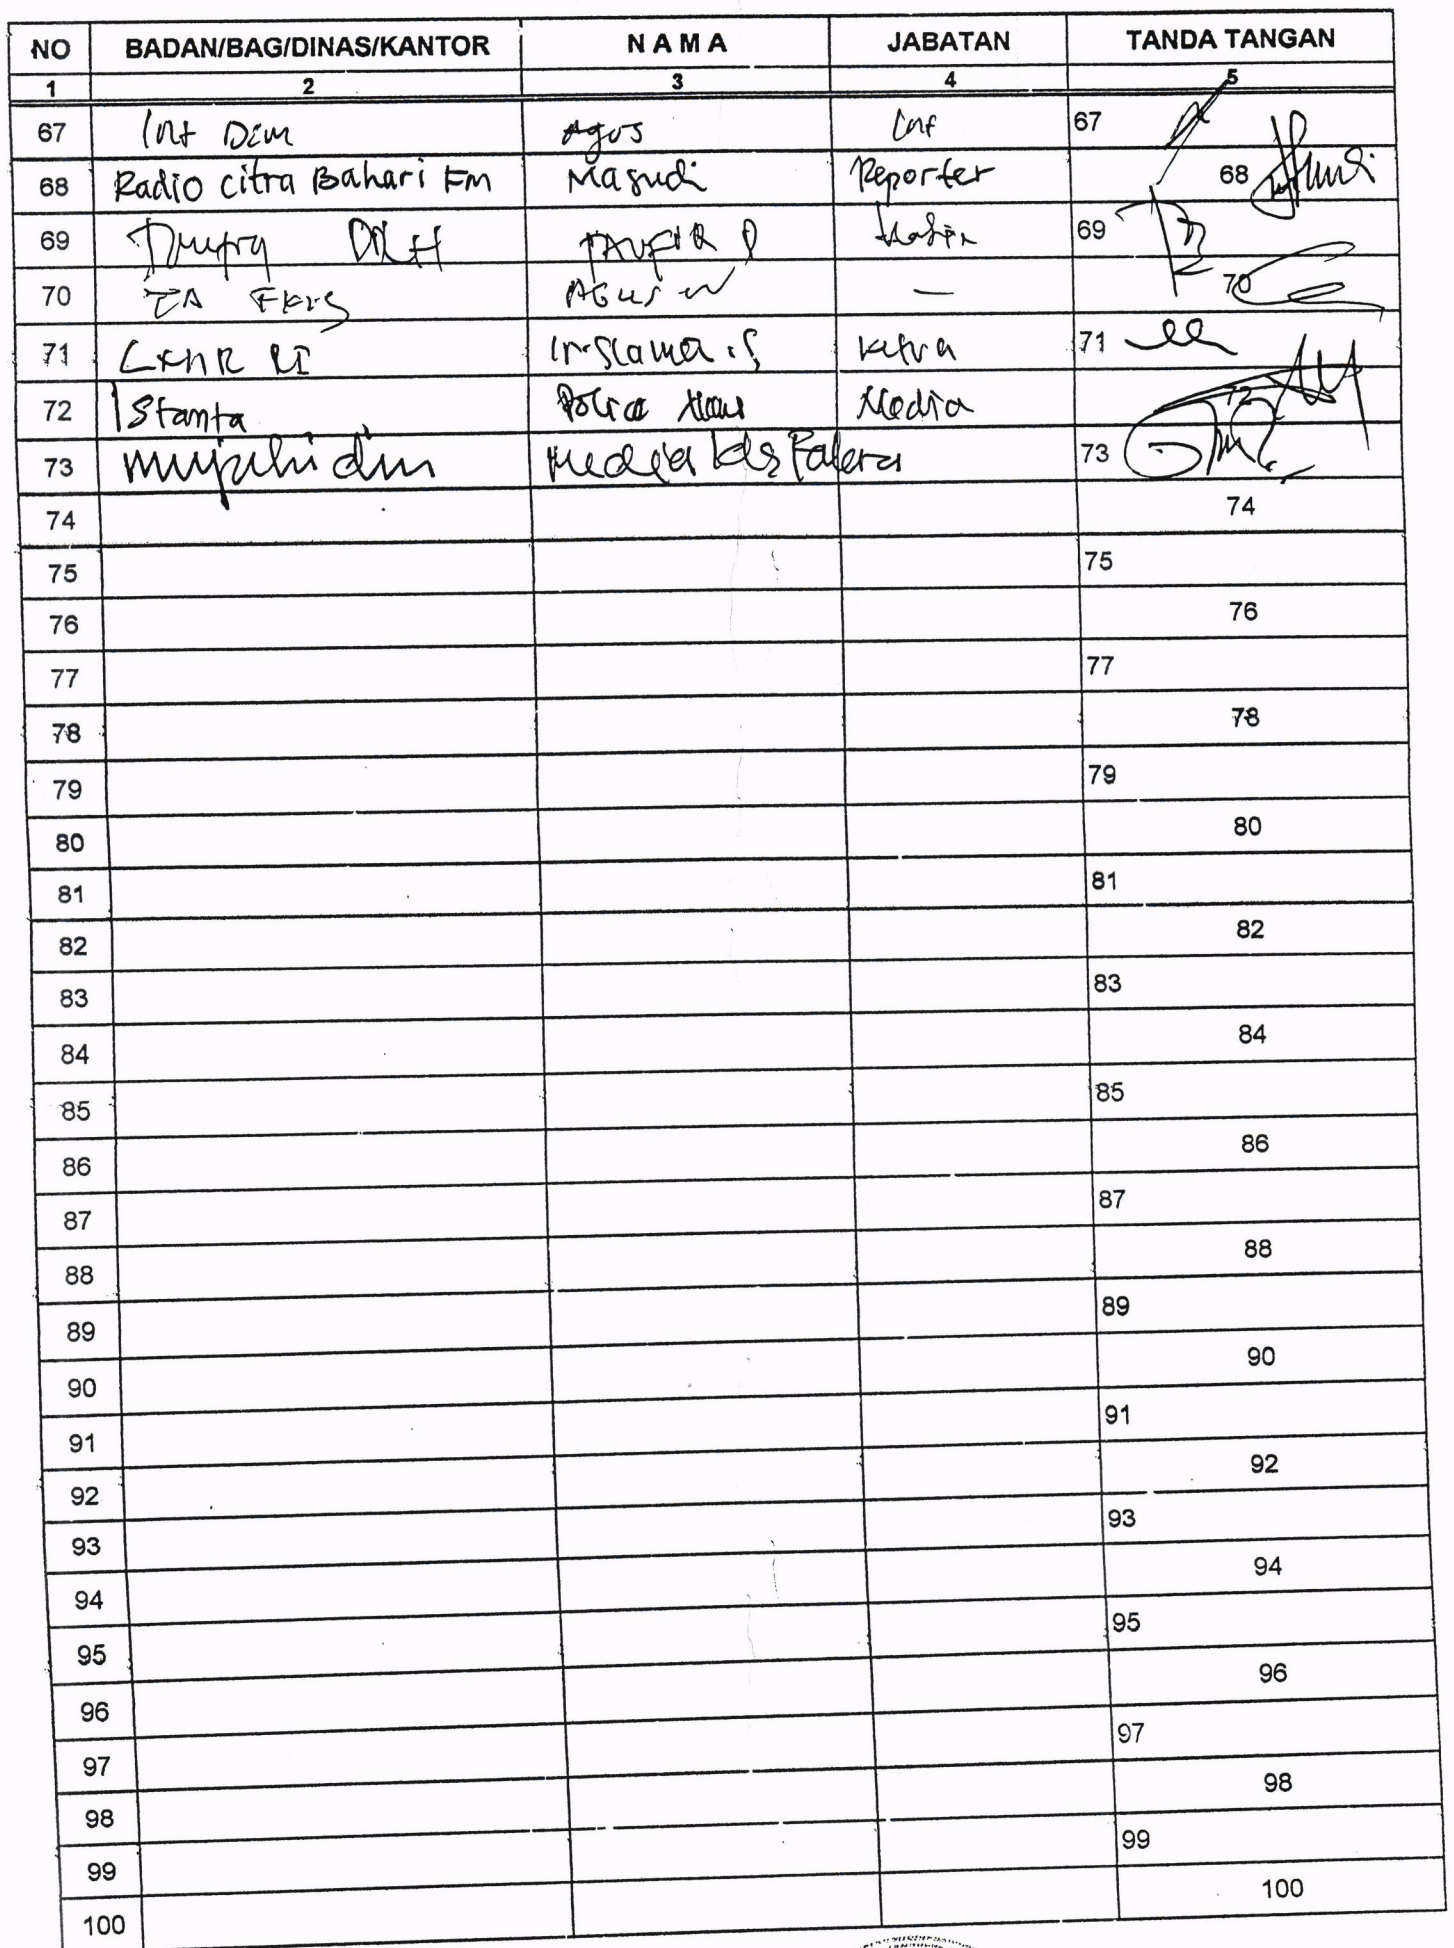 NO BADAN/BAG/DINAS/KANTOR N A M A JABATAN TANDA TANGAN
1 2 3 4 5
67 Int Dim Agus Int 67
68 Radio Citra Bahari Fm Masudi Reporter 68
69 69
70 AGUS W — 70
71 71
72 Istanta Media 72
73 mujahidin Media 73
74 74
75 75
76 76
77 77
78 78
79 79
80 80
81 81
82 82
83 83
84 84
85 85
86 86
87 87
88 88
89 89
90 90
91 91
92 92
93 93
94 94
95 95
96 96
97 97
98 98
99 99
100 100